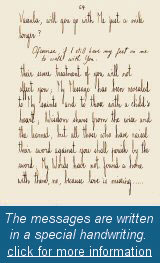 64
Vassula, will you go with Me just a while
longer?
Of course, if I still have my feet in me
to walk with You.
Their severe treatment of you will not
affect you; My Message has been revealed
to My saints and to those with a child's
heart; Wisdom shuns from the wise and
the learned, but all those who have raised
their sword against you shall perish by the
sword; My Words have not found a home
with them, no, because love is missing....
The messages are written
in a special handwriting.
click for more information